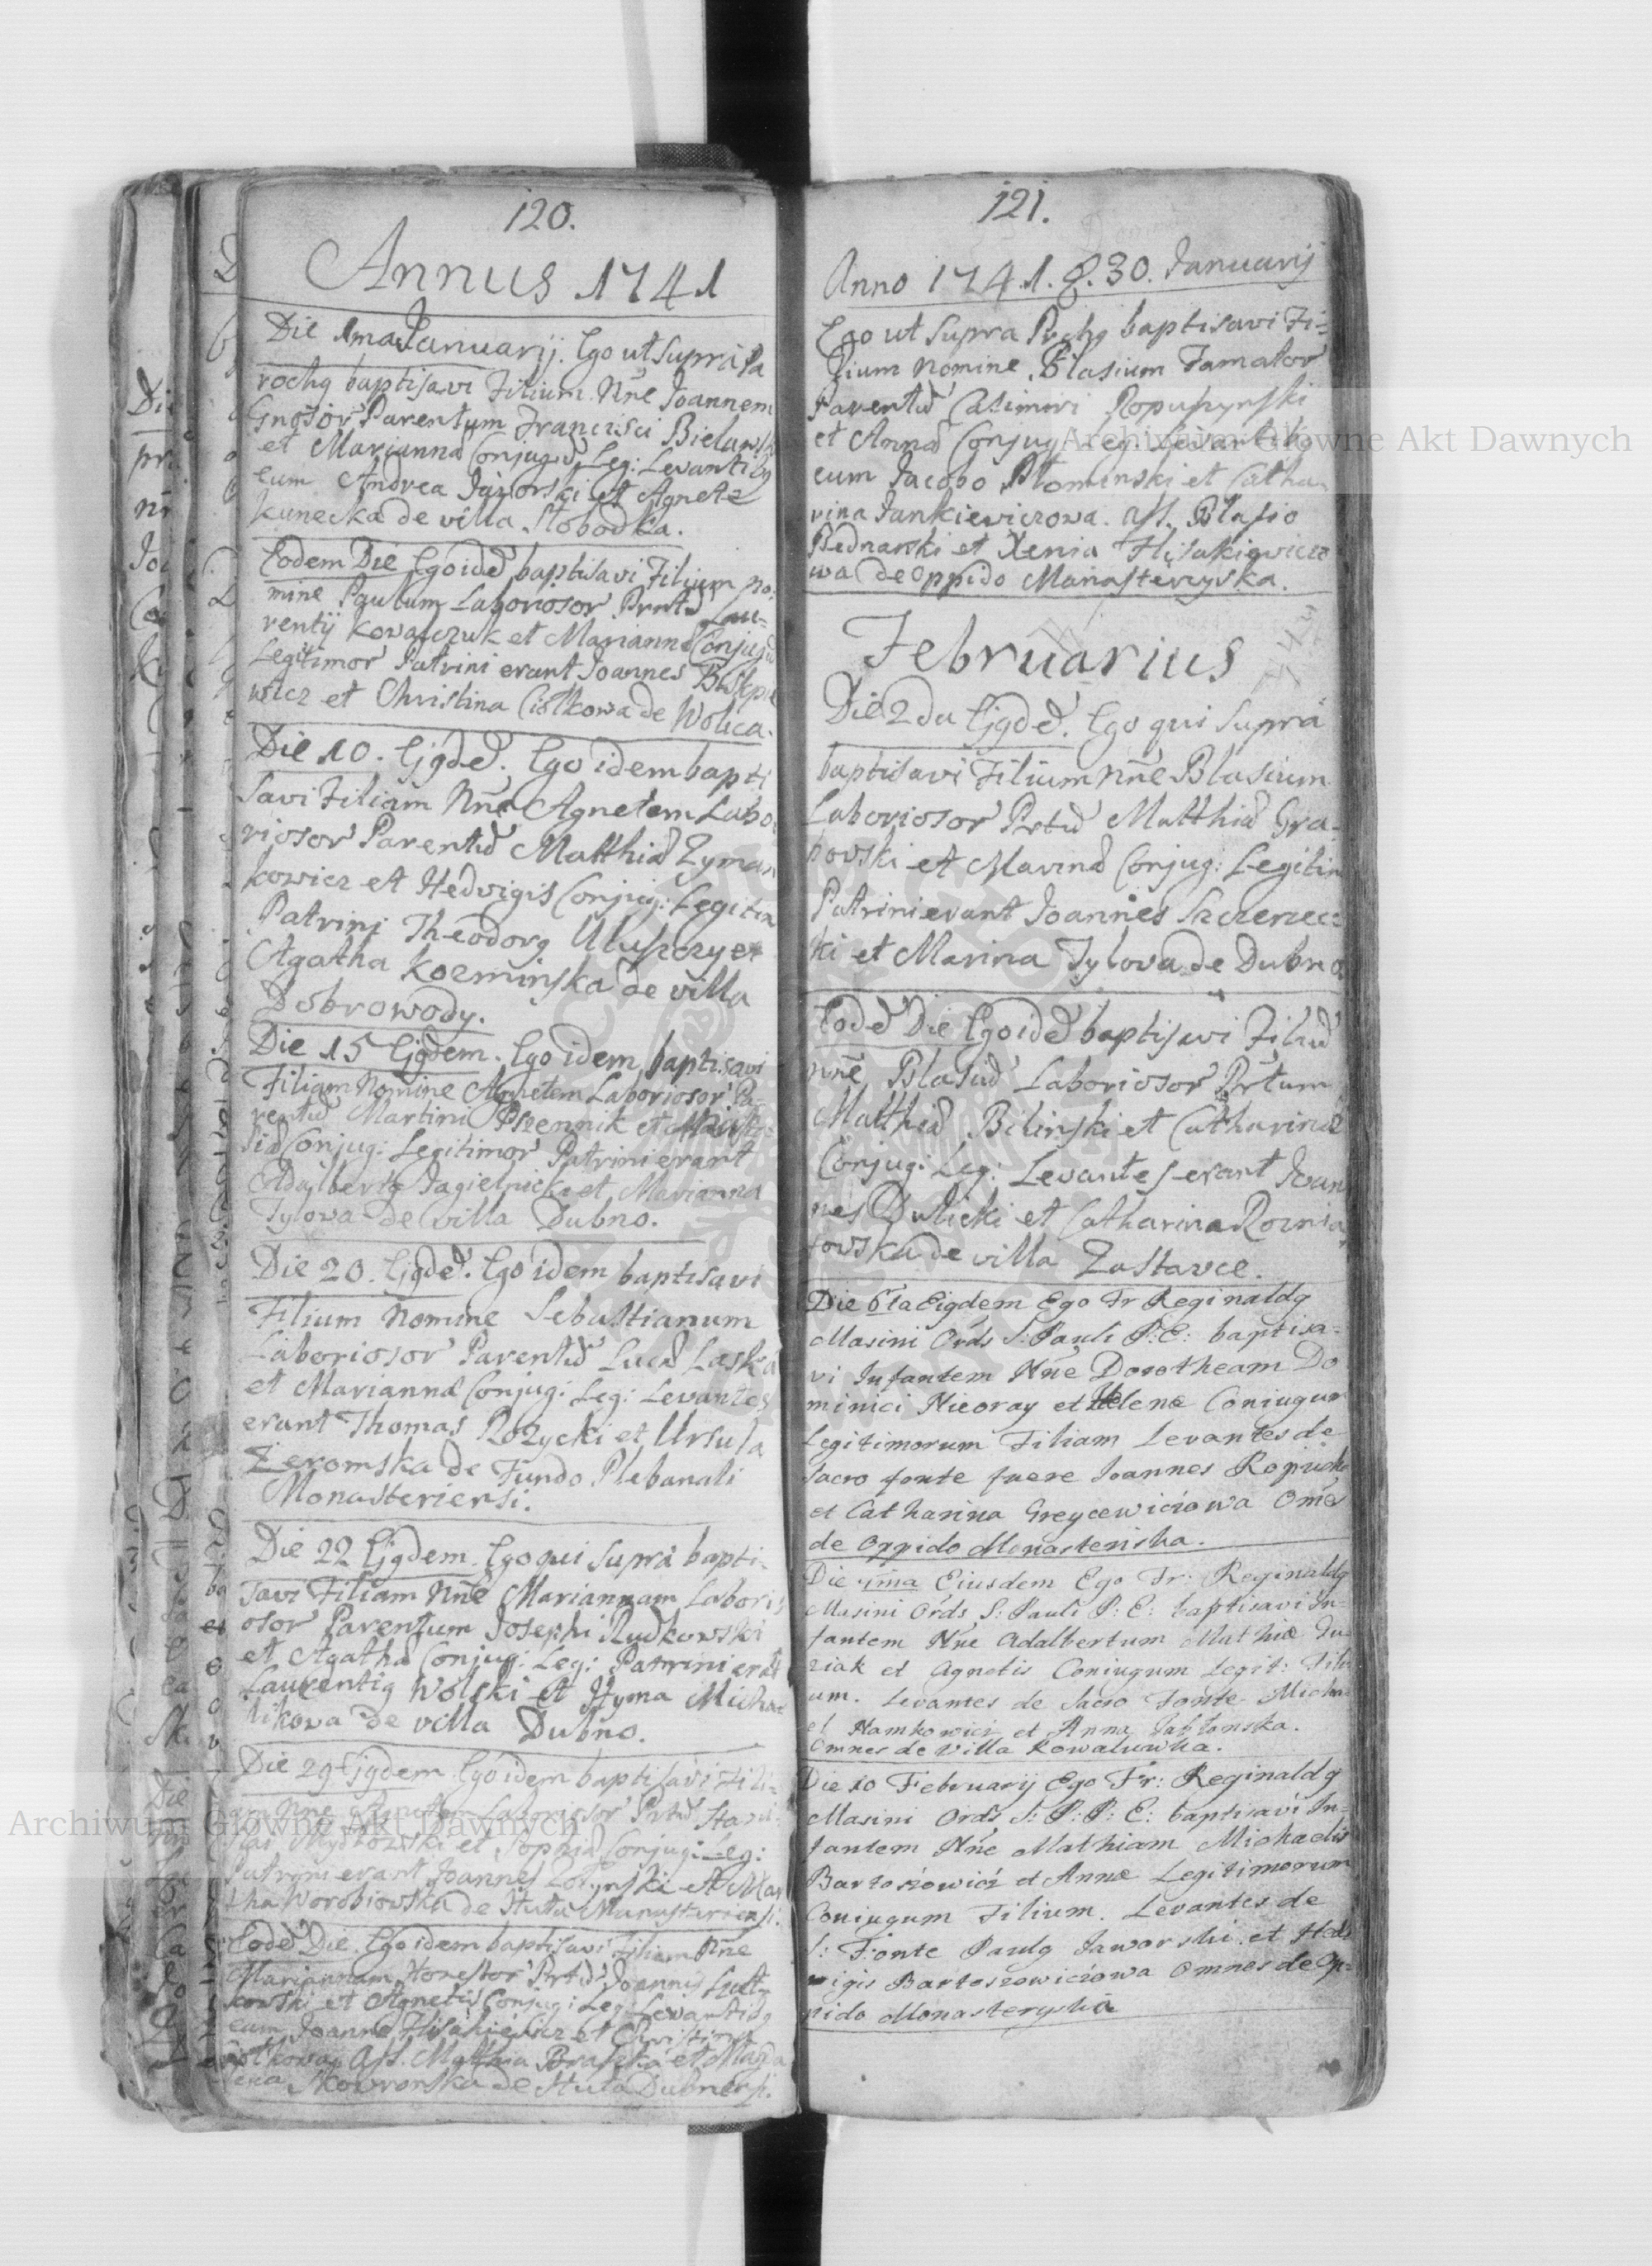 120.
Annus 1741
Die 1ma Januarij. Ego ut supra Pa
rochq baptisavi Filium Nne Joannem
Gnosor Parentum Francisci Bielawsk
et Marianna Conjugu Leg: Levantibq
eum Andrea Jaworski et Agnete
kunecka de villa Słobodka.
Eodem Die Ego ide baptisavi Filium no:
mine Paulum Laboriosor Prntu Lau=
rentij Kowalczuk et Marianna Conjugu
Legitimor Patrini erant Joannes
wicz et Christina Ciołkowa de Wolica.
Die 10. Ejqde. Ego idem bapti
savi Filiam Nne Agnetem Labo
riosor Parentu Matthia Zyman
kowicz et Hedvigis Conjug: Legitim
Patrinj Theodorq Uluszczy et
Agatha Kozminska de villa
Dobrowody.
Die 15 Ejqdem. Ego idem baptisavi
Filiam Nomine Agnetem Laboriosor Pa-
rentu Martini Pszennik et
Conjug: Legitimor Patrini erant
Adalbertq Jagielnicki et Marianna
Tylowa de villa Dubno.
Die 20. Ejqde. Ego idem baptisavi
Filium Nomine Sebastianum
Laboriosor Parentu Luca Laska
et Marianna Conjug: Leg: Levantes
erant Thomas Rozycki et Ursula
Zeromska de Fundo Plebanali
Monasteriensi.
Die 22 Ejqdem. Ego qui supra bapti-
savi Filiam Nne Mariannam Labori
osor Parentum Josephi Rudkowski
et Agatha Conjug: Leg: Patrini erat
Laurentiq Wolski et Hyma Micha
likowa de villa Dubno.
Die 29 Ejqdem. Ego idem baptisavi Fili-
am Nne Agnetem Laboriosor Prtu Stanis-
lai et Sophia Conjug: Leg:
Patrini erant Joannes et Mar
tha Worobiowska de Huta Monasteriensi.
Eode Die. Ego idem baptisavi Filiam Nne
Mariannam Honestor Prtu Joannis
kowski et Agnetis Conjug: Leg: Levantibq
eum Joanne Hlisakiewicz et Christina
Ass. Matthia et Magda
lena Skowronska de Huta Dubnensi.
121.
Anno 1741. d. 30. Januarij
Ego ut supra Prchq baptisavi Fi=
lium nomine Blasium Famator
Parentu Casimiri Ropuszynski
et Anna Conjug: Leg: Levantibq
eum Jacobo Płominski et Catha
rina Jankiewiczowa. Ass. Blasio
Bednarski et Xenia Hlisakiewiczo
wa de Oppido Manasterzyska.
Februarius
Die 2da Ejqde. Ego qui supra
baptisavi Filium Nne Blasium
Laboriosor Prtu Matthia Gra-
bovski et Marina Conjug: Legitim
Patrini erant Joannes Szczenec=
ki et Marina Tylova de Dubno
Eode Die Ego ide baptisavi Filiu
nne Blasiu Laboriosor Prtum
Matthia Bilinski et Catharina
Conjug: Leg: Levantes erant Joan
nes Dulicki et Catharina Roznia
towska de villa Zastavce.
Die 6ta Eiqdem Ego Fr Reginaldq
Masini Ords S: Pauli P: E: baptisa-
vi Infantem Nne Dorotheam Do
minici Nieoray et Helena Coniugum
Legitimorum Filiam Levantes de
sacro fonte fuere Joannes Ropucki
et Catharina Greycewiczowa Omes
de Oppido Monasteriska.
Die Eiusdem Ego Fr: Reginaldq
Masini Ords S: Pauli P: E: baptisavi In-
fantem Nne Adalbertum Mathia Du
ziak et Agnetis Coniugum Legit: Fili
um. Levantes de sacro Fonte Micha
el Namkowicz et Anna Jabłonska.
Omnes de Villa Kowaluwka.
Die 10 Februarij Ego Fr: Reginaldq
Masini Ords S: P: P: E: baptisavi In-
fantem Nne Mathiam Michaelis
Bartoszowicz et Anna Legitimorum
Coniugum Filium. Levantes de
S: Fonte Paulq Jaworski et Hed
vigis Bartoszowiczowa Omnes de Op-
pido Monasteryska
Archiwum Główne Akt Dawnych
Archiwum Główne Akt Dawnych